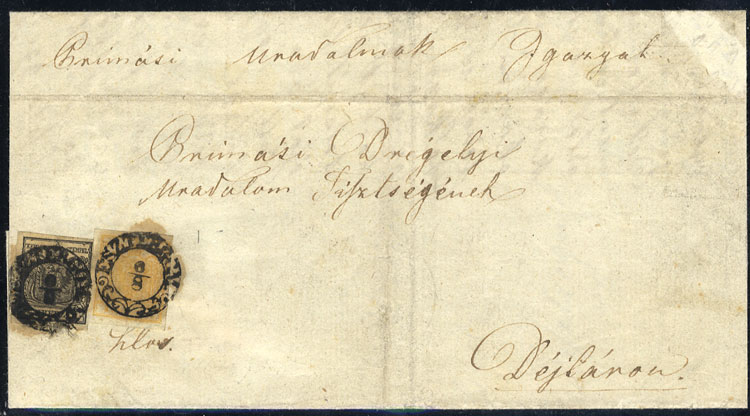 Primási Uradalmak Igazgat.
Primási Drégelyi
Uradalom Tisztségének
ESZTERGOM
8/8
Dejtáron.